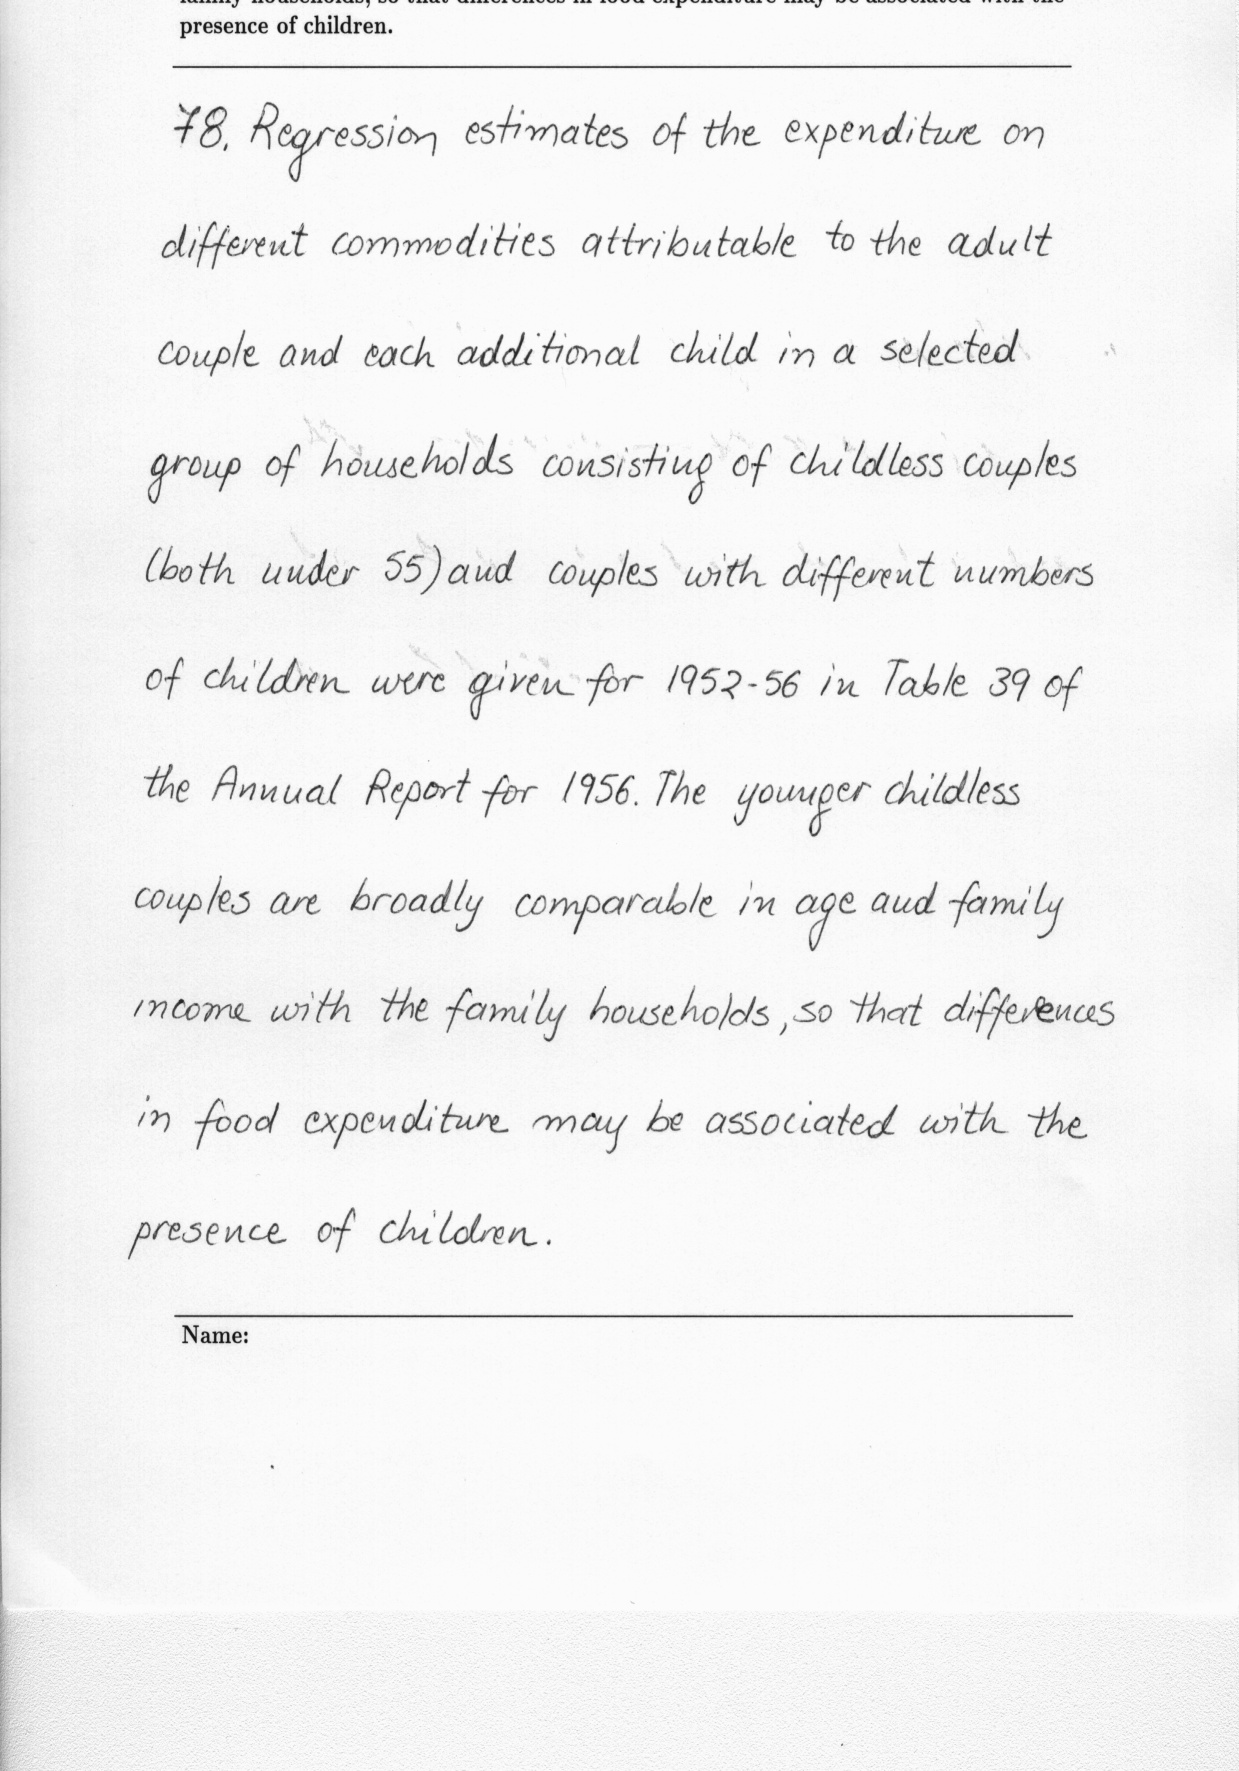 family households, so that differences in food expenditure may be associated with the
presence of children.
78. Regression estimates of the expenditure on
different commodities attributable to the adult
couple and each additional child in a selected
group of households consisting of childless couples
(both under 55) and couples with different numbers
of children were given for 1952-56 in Table 39 of
the Annual Report for 1956. The younger childless
couples are broadly comparable in age and family
income with the family households, so that differences
in food expenditure may be associated with the
presence of children.
Name: